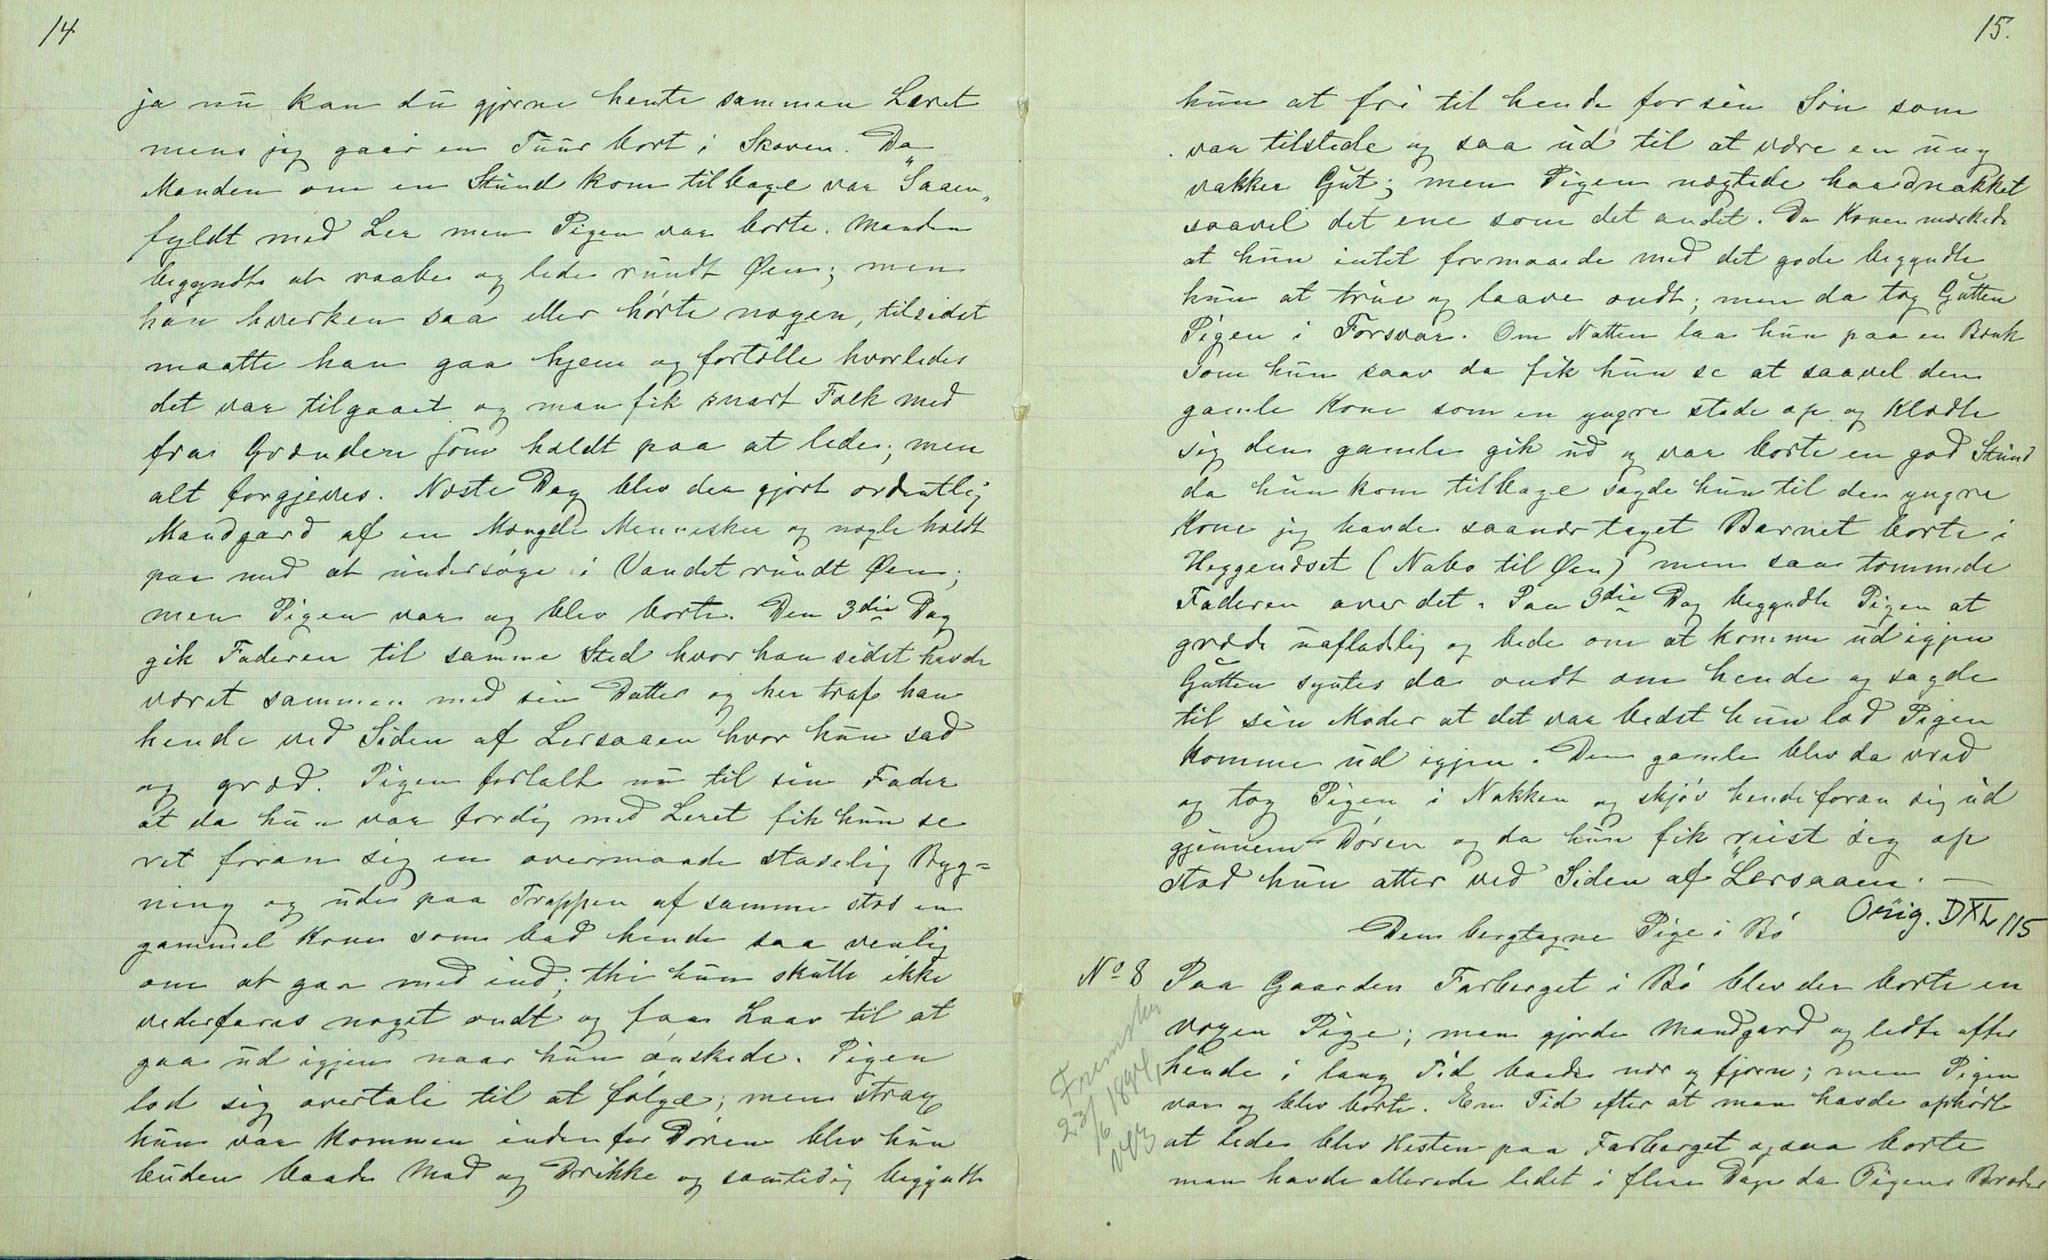 14
ja nu kan du gjerne hente sammen Leret
mens jeg gaar en Tuur bort i Skoven. Da
Manden om en Stund kom tilbage var "Saaen"
fyldt med Ler men Pigen var borte. Manden
begyndte at raabe og lede rundt Øen; men
han hverken saa eller hørte nogen, tilsidst
maatte han gaa hjem og fortælle hvorledes
det var tilgaaet og man fik snart Folk med
fra Grænden som holdt paa at lede; men
alt forgjeves. Næste Dag blev der gjort ordentlig
Mandgard af en Mængde Mennesker og nogle holdt
paa med at undersøge i Vandet rundt Øen;
men Pigen var og blev borte. Den 3die Dag
gik Faderen til samme Sted hvor han sidst havde
været sammen med sin Datter og her traf han
hende ved Siden af Lersaaen hvor hun sad
og græd. Pigen fortalte nu til sin Fader
at da hun var færdig med Leret fik hun se
ret foran sig en overmaade stadselig Byg=
ning og ude paa Trappen af samme stod en
gammel Kone som bad hende saa venlig
om at gaa med ind; thi hun skulle ikke
vederfares noget ondt og faa Laav til at
gaa ud igjen naar hun ønskede. Pigen
lod sig overtale til at følge; men strax
hun var kommen indenfor Døren blev hun
buden baade Mad og Drikke og samtidig begyndte
15.
hun at fri til hende for sin Søn som
var tilstede og saa ud til at være en ung
vakker Gut; men Pigen nægtede haardnakket
saavel det ene som det andet. Da Konen mærkede
at hun intet formaaede med det gode begyndte
hun at true og laave ondt; men da tog Gutten
Pigen i Forsvar. Om Natten laa hun paa en Bænk
som hun saav da fik hun se at saavel den
gamle Kone som en yngre stode op og klædte
sig den gamle gik ud og var borte en god Stund
da hun kom tilbage sagde hun til den yngre
Kone jeg havde saanær taget Barnet borte i
Heggendset (Nabo til Øen) men saa tommede
Faderen over det. Paa 3die Dag begyndte Pigen at
græde uafladelig og bede om at komme ud igjen
Gutten syntes da ondt om hende og sagde
til sin Moder at det var bedst hun lod Pigen
komme ud igjen. Den gamle blev da vred
og tog Pigen i Nakken og skjøv hende foran sig ud
gjennem Døren og da hun fik reist sig op
stod hun atter ved Siden af "Lersaaen. —
Orig. DXL 115
Den bergtagne Pige i Bø
No 8 Paa Gaarden Farberget i Bø blev der borte en
voxen Pige; man gjorde Mandgard og ledte efter
hende i lang Tid baade nær og fjern; men Pigen
var og blev borte. En Tid efter at man havde ophørt
at lede blev Hesten paa Farberget ogsaa borte
man havde allerede ledet i flere Dage da Pigens Broder
23/6 1894